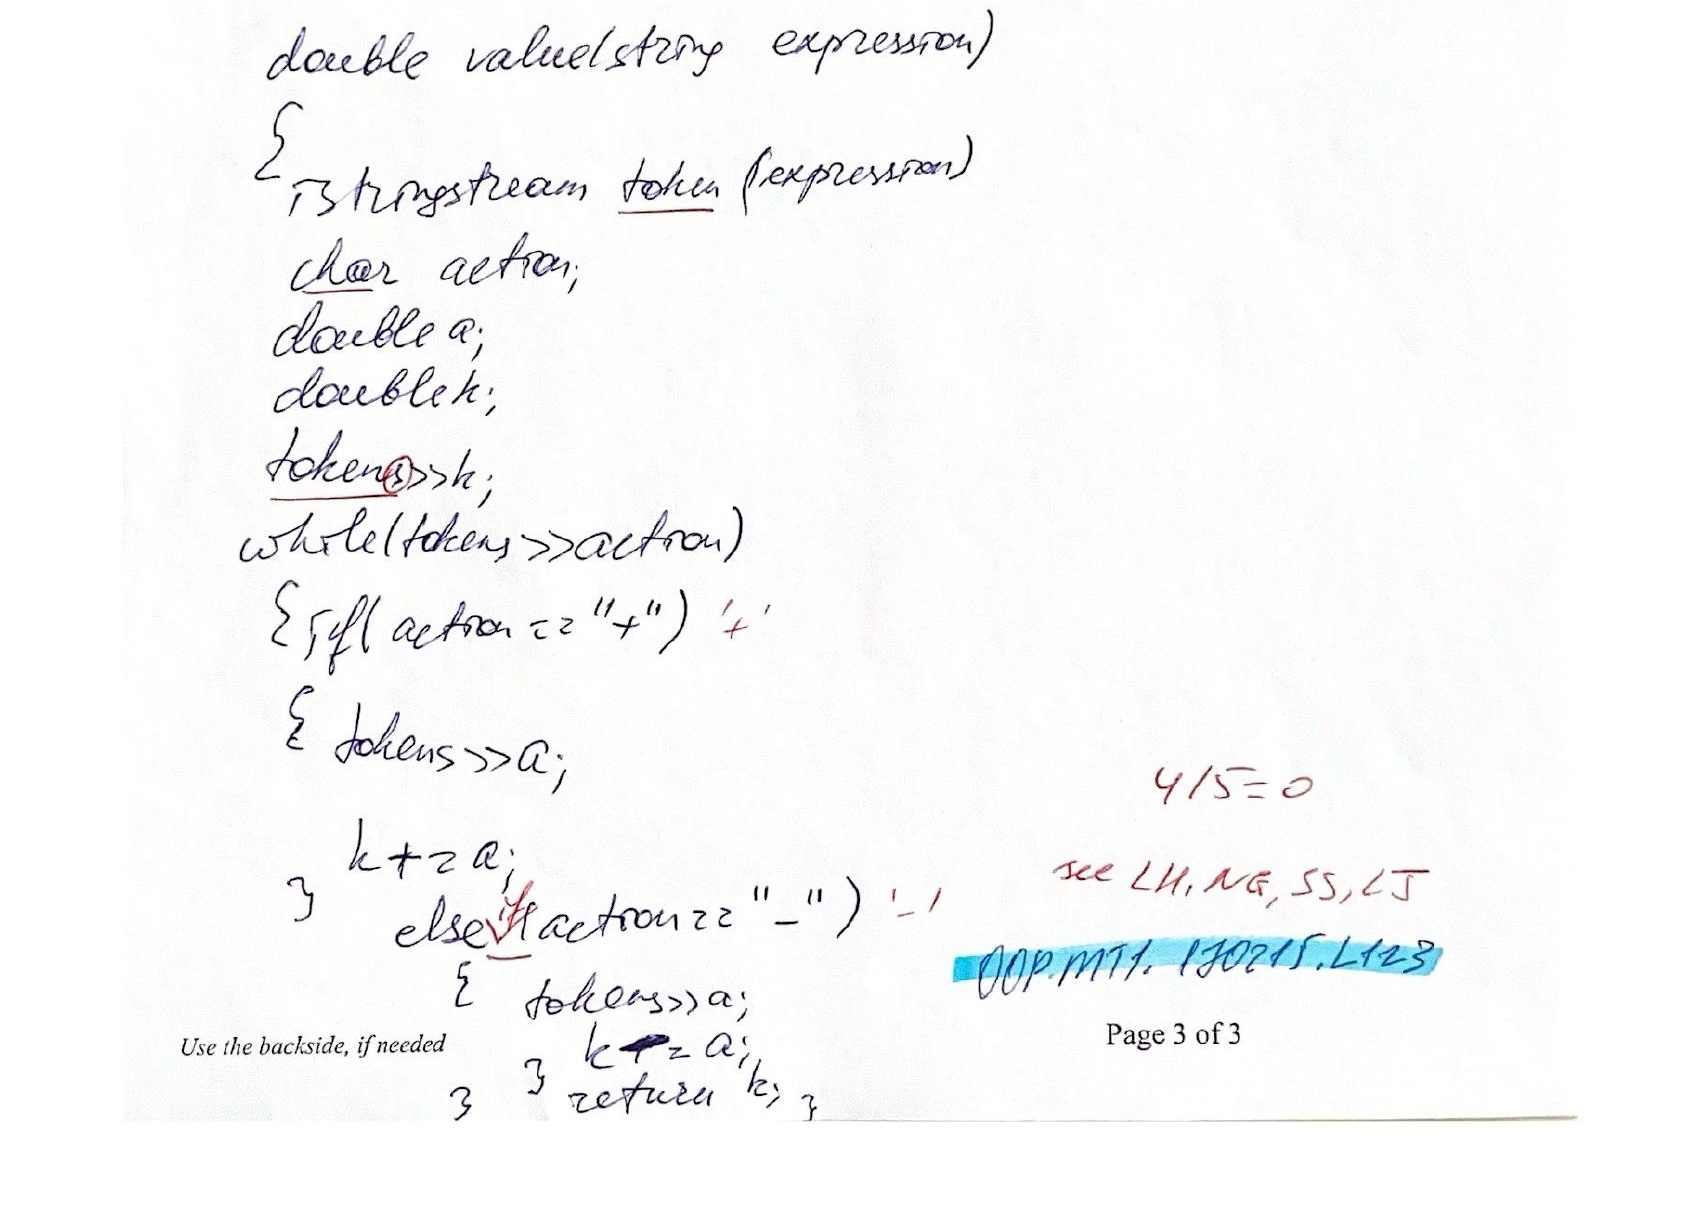 double value(string expression)
{
istringstream token (expression)
char action;
double a;
double k;
tokens>>k;
while(tokens>>action)
{ if( action == "+") '+'
{ tokens>>a;
k+=a;
}
else if action == "-") '-'
{ tokens>>a;
k-=a;
} return k; }
}
4/5=0
see LH, NG, SS, LJ
OOP.MT1. 170215.L123
Use the backside, if needed
Page 3 of 3